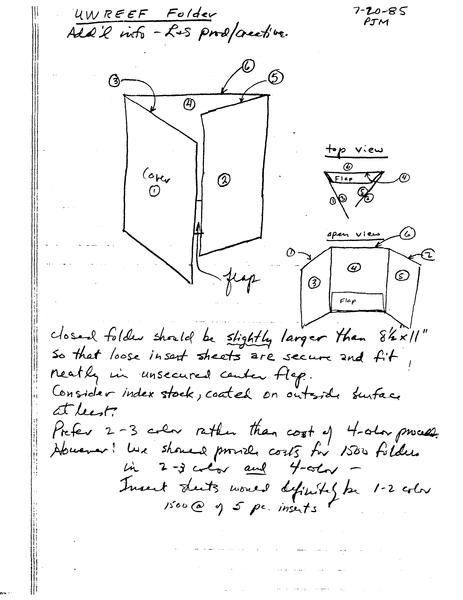 UWREEF Folder
7-20-85
PJM
Add'l info - L+S prod/creative.
⑥
③
⑤
④
Cover
①
②
flap
top view
⑥
Flap
④
① ③ ⑤ ②
open view
⑥
①
②
③
④
⑤
Flap
closed folder should be slightly larger than 8½"x11"
so that loose insert sheets are secure and fit
neatly in unsecured center flap.
Consider index stock, coated on outside surface
at least.
Prefer 2-3 color rather than cost of 4-color process.
However! We should provide costs for 1500 folders
in 2-3 color and 4-color -
Insert sheets would definitely be 1-2 color
1500 @ of 5 pc. inserts